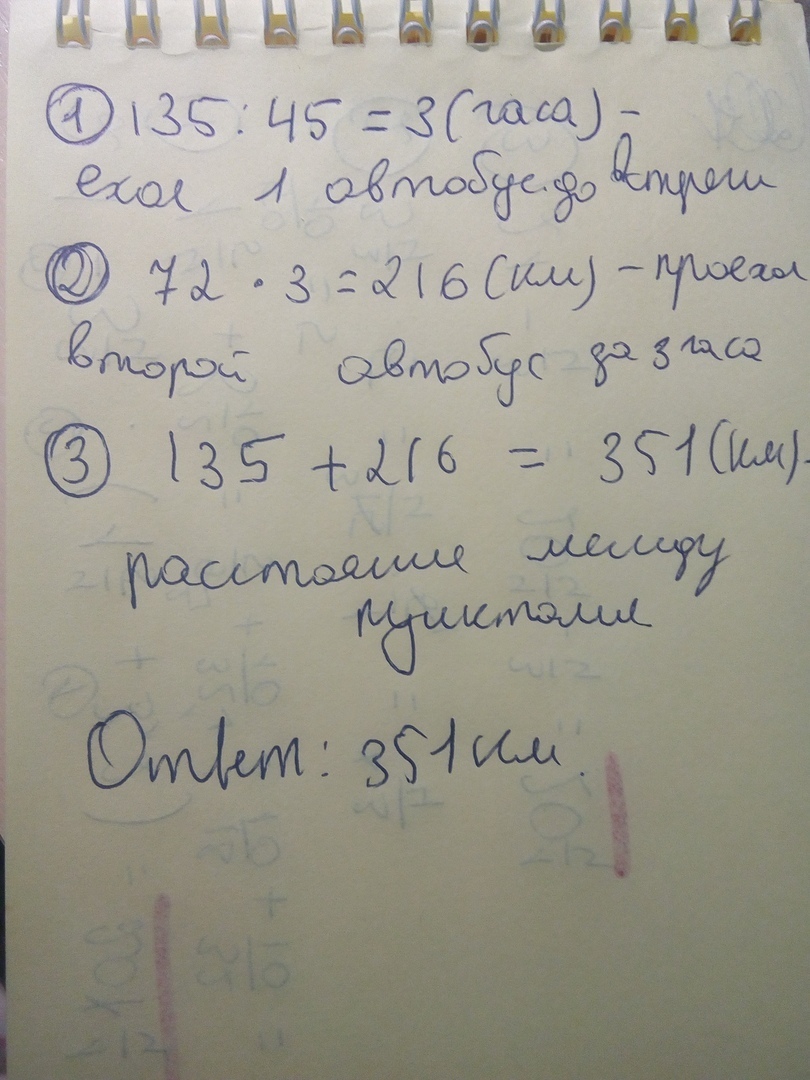 ① 135 : 45 = 3 (часа) -
ехал 1 автобус до встречи
② 72 · 3 = 216 (км) - проехал
второй автобус за 3 часа
③ 135 + 216 = 351 (км) -
расстояние между
пунктами
Ответ: 351 км.